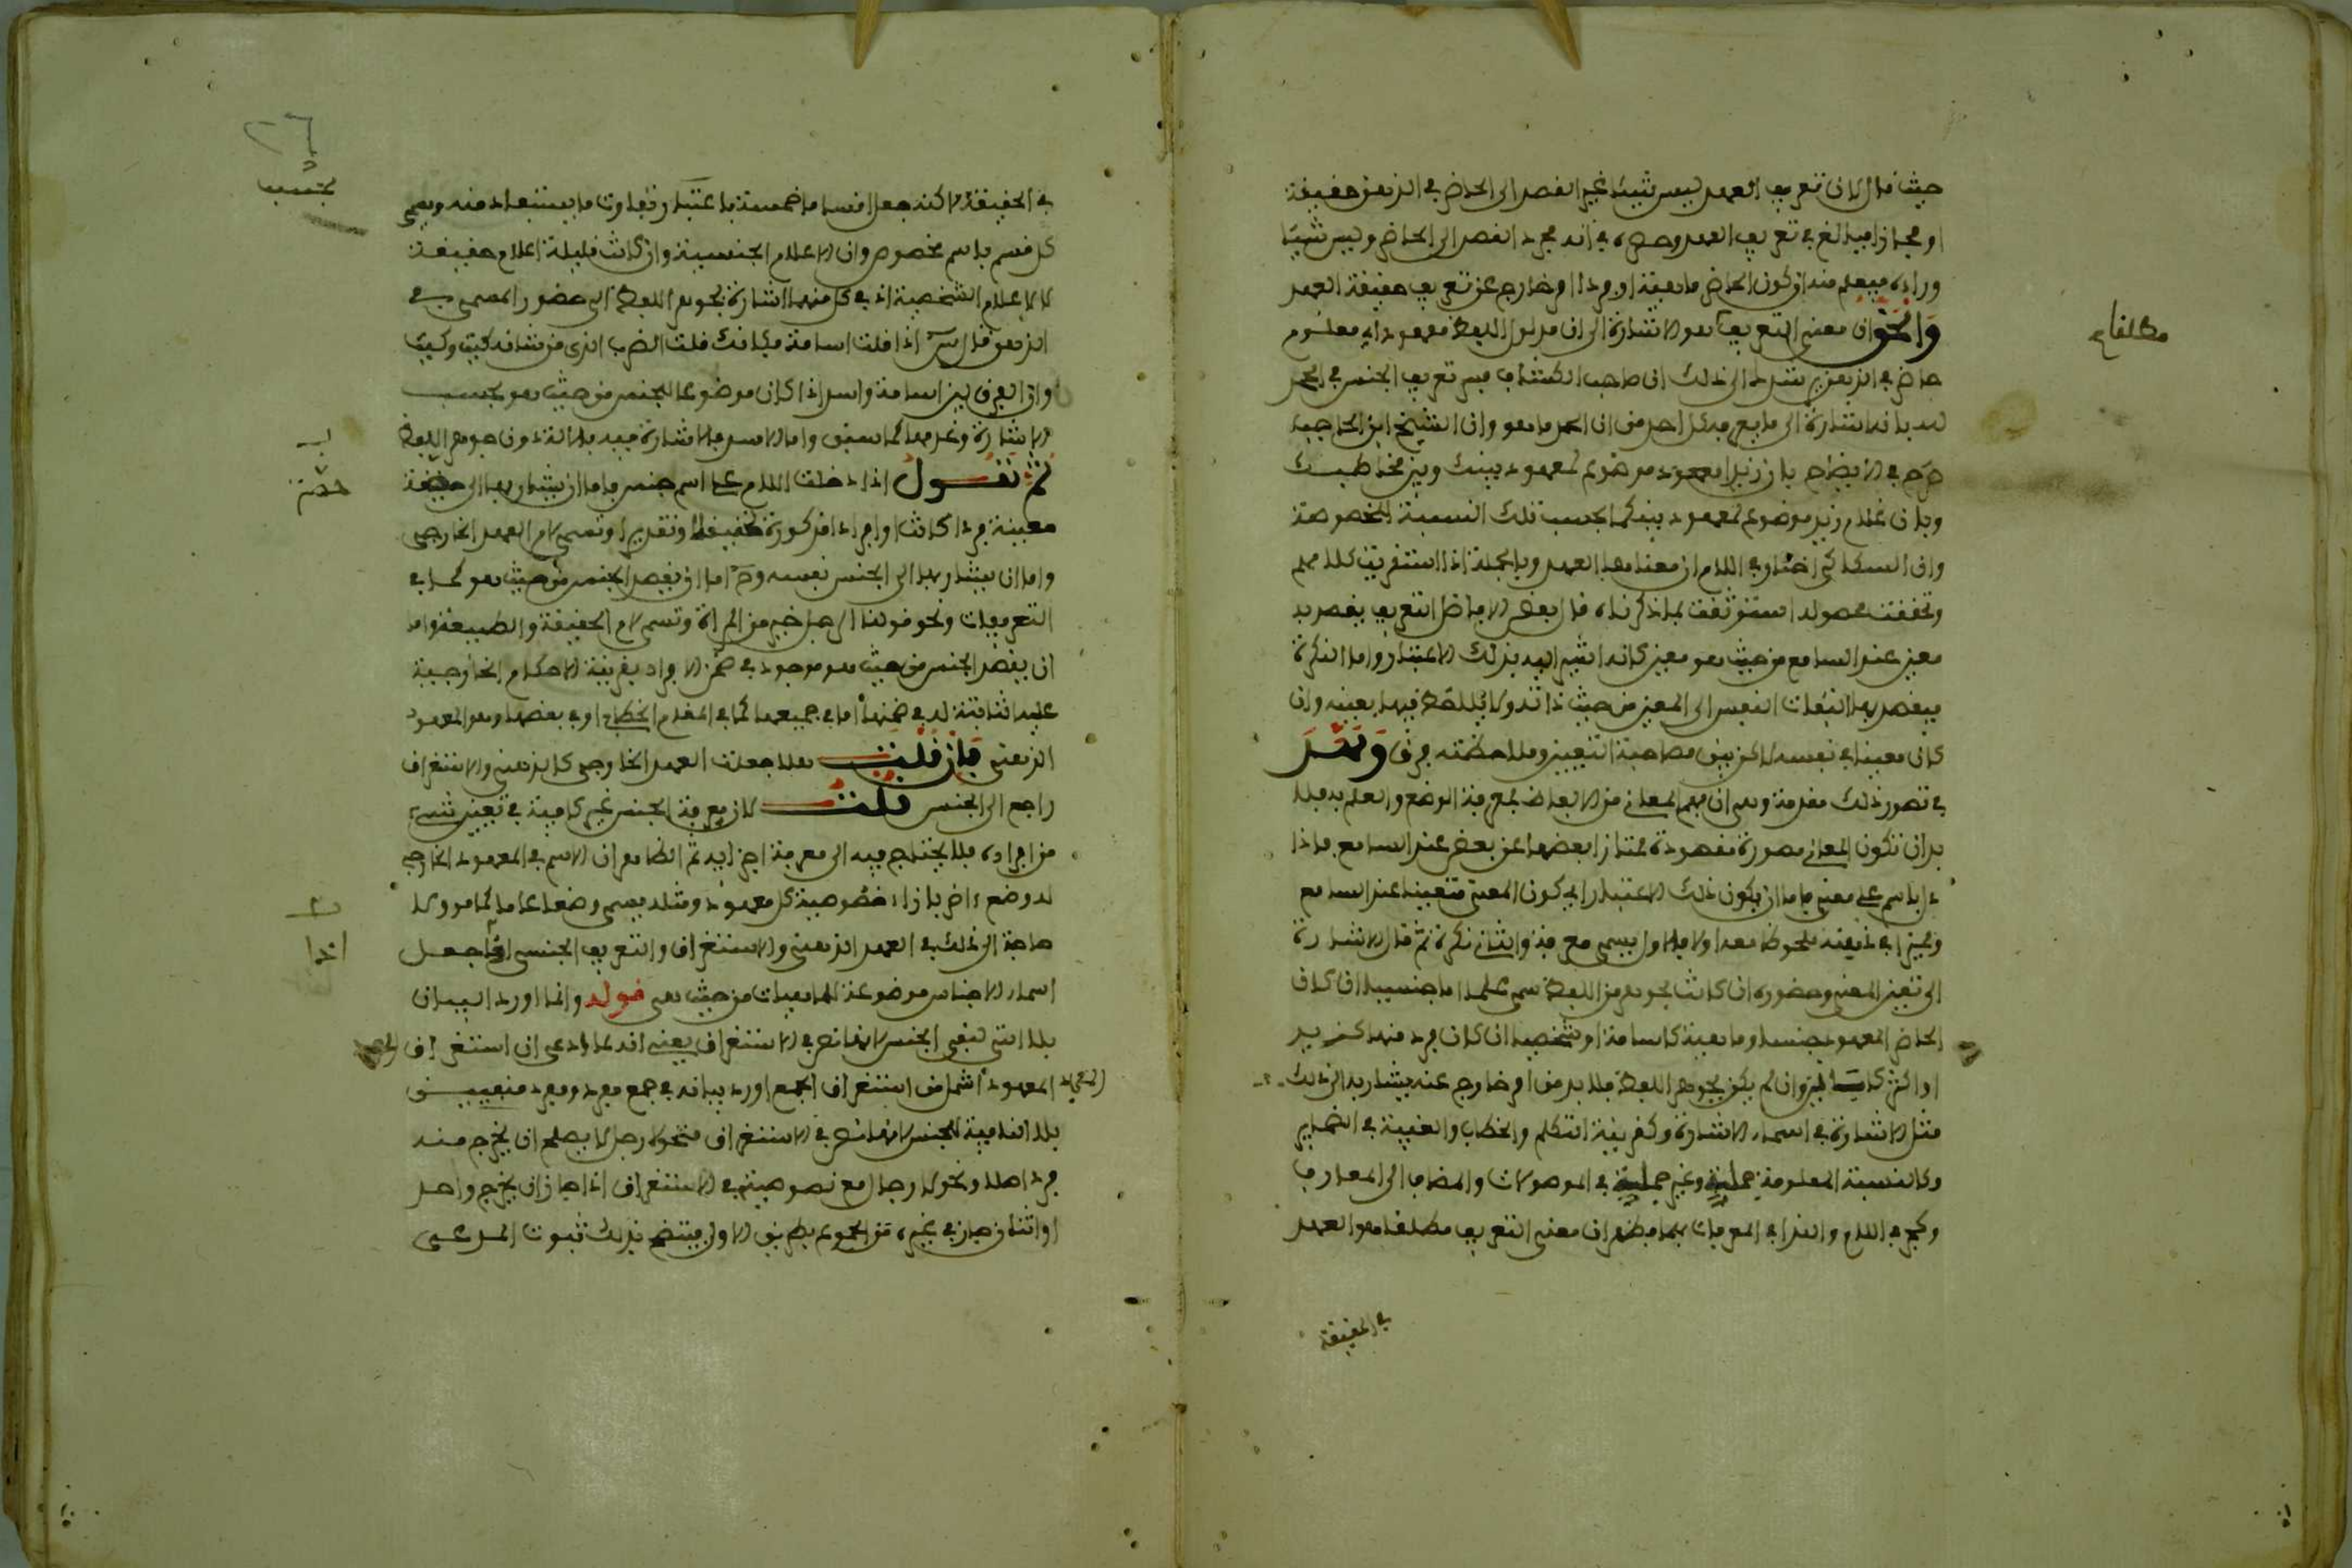 حيث قال لان تعريف العهد ليس شيئا غير القصد الى الحاضر في الذهن حقيقة
او مجازا فبالغ في تعريف العهد وحصره في انه مجرد القصد الى الحاضر وليس شيئا
وراءه فيعلم منه ان كون الحاضر ماهية او فردا امر خارج عن تعريف حقيقة العهد
والحق ان معنى التعريف هو الاشارة الى ان مدلول اللفظ معهود اي معلوم
مطلقا
حاضر في الذهن يرشدك الى ذلك ان صاحب الكشاف فسر تعريف الجنس في الحمد
لله بانه اشارة الى ما يعرفه كل احد من ان الحمد ما هو وان الشيخ ابن الحاجب
صرح في الايضاح بان زيدا معهود موضوع لمعهود بينك وبين مخاطبك
وبان غلام زيد موضوع لمعهود بينكما بحسب تلك النسبة المخصوصة
وان السكاكي اختار في اللام ان معناها العهد وبالجملة اذا استقريت كلامهم
وتحققت محصوله استوثقت بما ذكرناه قال بعض الافاضل التعريف يقصد به
معين عند السامع من حيث هو معين كانه اشير اليه بذلك الاعتبار واما النكرة
فيقصد بها التفات النفس الى المعين من حيث ذاته ولا يلاحظ فيها تعينه وان
كان معينا في نفسه لاكن بين مصاحبة التعيين وملاحظته فرق ونمهد
في تصور ذلك مقدمة وهي ان فهم المعاني من الالفاظ بمعرفة الوضع والعلم به فلا
بد ان تكون المعاني مصورة مقصودة ممتازا بعضها عن بعض عند السامع فاذا
دل باسم على معنى فاما ان يكون ذلك الاعتبار اي كون المعنى متعينا عند السامع
ومميزا في ذهنه ملحوظا معه اولا فالاول يسمى معرفة والثاني نكرة ثم قال الاشارة
الى تعين المعنى وحضوره ان كانت بجوهر اللفظ سمي علما اما جنسيا ان كان
الحاضر المعهود جنسا وماهية كاسامة او شخصيا ان كان فرد منها كزيد
او اكثر وان لم يكن بجوهر اللفظ فلا بد من امر خارج عنه يشار به الى ذلك
مثل الاشارة في اسماء الاشارة وكقرينة التكلم والخطاب والغيبة في الضماير
وكالنسبة المعلومة جملية وغير جملية في الموصولات والمضاف الى المعارف
وكحرفي اللام والندا في المعرفات بهما فظهر ان معنى التعريف مطلقا هو العهد
في الحقيقة
٢٦
في الحقيقة لاكنه جعل اقساما خمسة باعتبار تفاوت ما يستفاد منه وسمي
بحسب
كل قسم باسم مخصوص وان الاعلام الجنسية وان كانت قليلة اعلام حقيقة
كالاعلام الشخصية اذ في كل منها اشارة بجوهر اللفظ الى حضور المسمى في
الذهن قال س اذا قلت اسامة فكانك قلت الضرب الذي من شانه كيت وكيت
وان الفرق بين اسامة واسد اذا كان موضوعا للجنس من حيث هو بحسب
الاشارة وعدمها كما سبق واما الاسد فالاشارة فيه بالالة دون جوهر اللفظ
ثم نقول اذا دخلت اللام على اسم جنس فاما ان يشار بها الى حصة
حصة
معينة فردا كانت او افرادا مذكورة تحقيقا او تقديرا وتسمى لام العهد الخارجي
واما ان يشار بها الى الجنس نفسه وح اما ان يقصد الجنس من حيث هو كما في
التعريفات ونحو قولنا الرجل خير من المراة وتسمى لام الحقيقة والطبيعة واما
ان يقصد الجنس من حيث هو موجود في ضمن الافراد بقرينة الاحكام الخارجية
عليه الثابتة له في ضمنها اما في جميعها كما في المقام الخطابي او في بعضها وهو المعهود
الذهني فان قلت هلا جعلت العهد الخارجي كالذهني والاستغراق
راجع الى الجنس قلت لان معرفة الجنس غير كافية في تعيين شيء
من افراده بل يحتاج فيه الى معرفة اخرى ثم الظاهر ان الاسم في المعهود الخارجي
له وضع اخر بازاء خصوصية كل معهود ومثله يسمى وضعا عاما كما مر ولا
حاجة الى ذلك في العهد الذهني والاستغراق والتعريف الجنسي اذا جعل
اذا
اسماء الاجناس موضوعة للماهيات من حيث هي قوله وانما اورد البيان
بلا التي لنفي الجنس لانها نص في الاستغراق يعني انه لما ادعى ان استغراق
المعهود اشمل من استغراق الجمع اورد بيانه في جمع مفرد ومفرد منفيين
بلا النافية للجنس لانها نص في الاستغراق فنحو لا رجل لا يصلح ان يخرج منه
فرد اصلا ونحو لا رجال مع نصوصيته في الاستغراق اذا جاز ان يخرج واحد
او اثنان جاز في غيره من الجموع بطريق الاولى فيتضح بذلك ثبوت المدعى